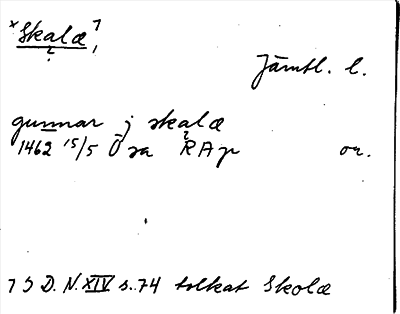 ×Skalæ⁷,
?
Jämtl. l.
gunnar j skalæ
?
1462 15/5 Ösa RAp or.
7 J D. N. XIV s. 74 tolkat Skolæ